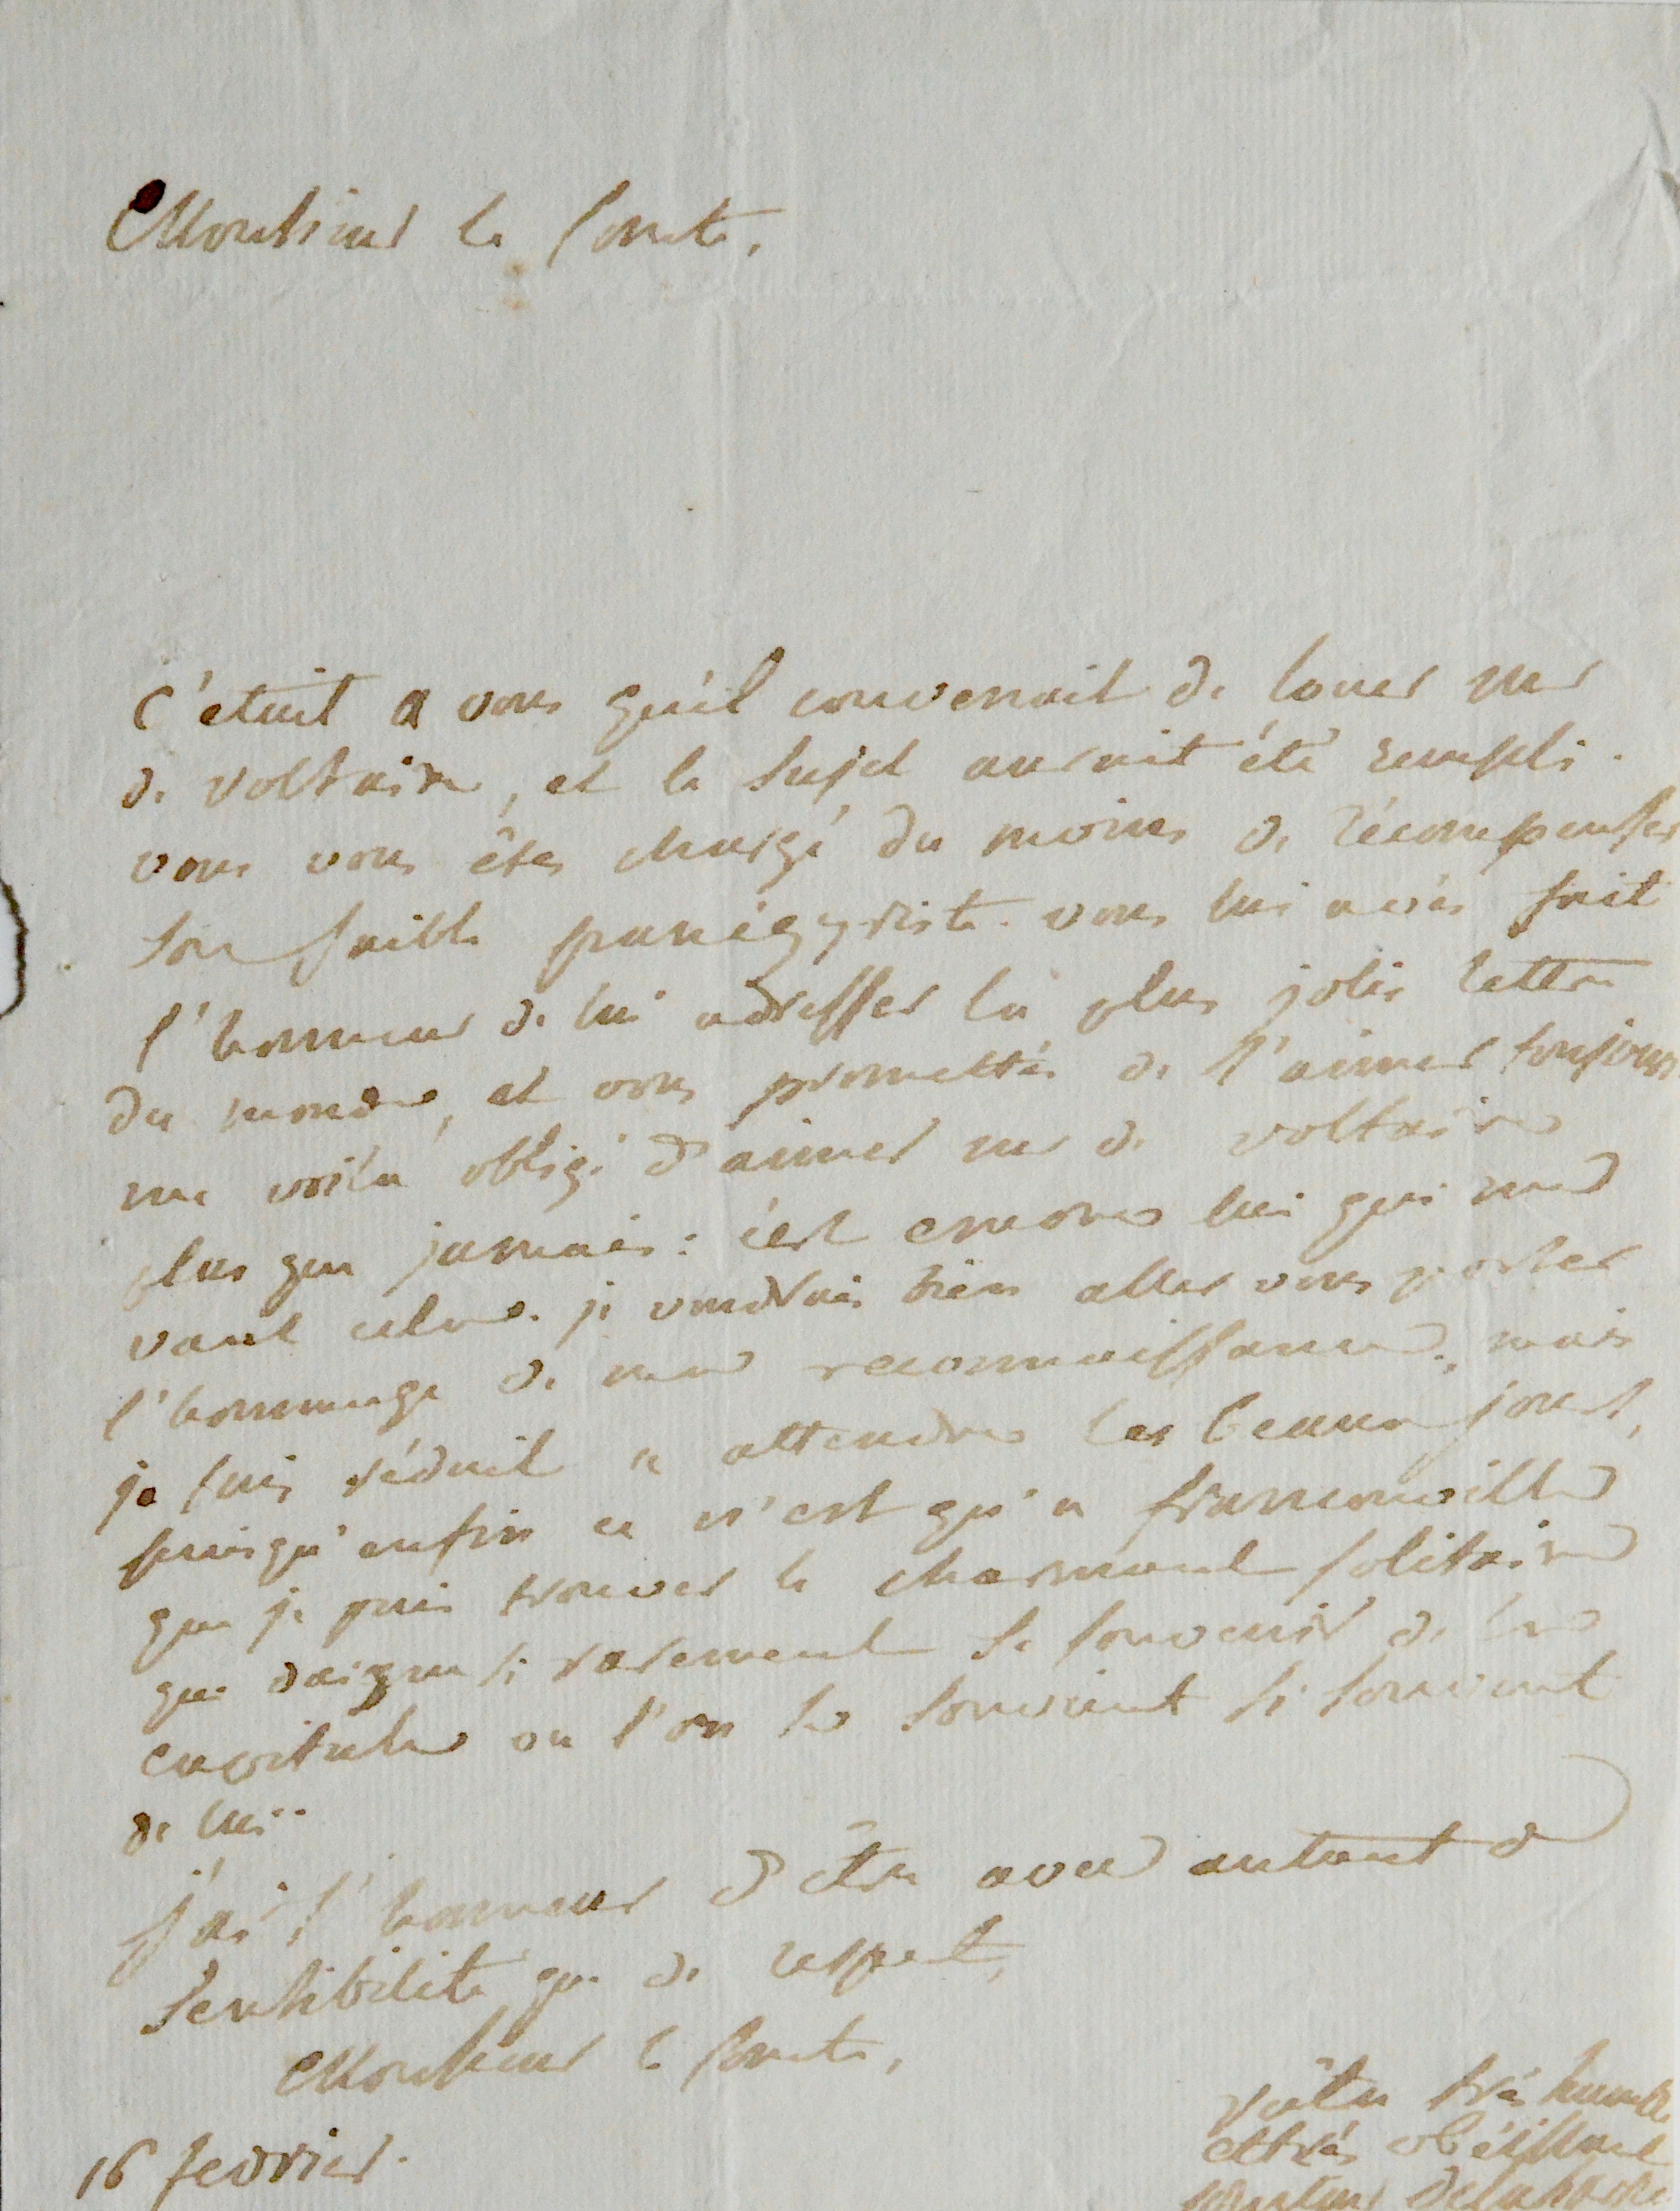 Monsieur le Comte,
c'etait a vous qu'il convenait de louer mr
de voltaire, et le sujet aurait été rempli.
vous vous êtes chargé du moins de récompenser
son faible panégyriste. vous lui avés fait
l'honneur de lui adresser la plus jolie lettre
du monde, et vous promettés de l'aimer toujours
me voila obligé d'aimer mr de voltaire
plus que jamais: c'est encore lui qui me
vaut cela. je voudrais bien aller vous porter
l'hommage de ma reconnaissance, mais
je suis réduit a attendre les beaux jours,
puisqu'enfin ce n'est qu'a franconville
que je puis trouver le charmant solitaire
qui daigne si rarement se souvenir de la
capitale ou l'on se souvient si souvent
de lui..
j'ai l'honneur d'être avec autant de
sensibilité que de respect,
Monsieur le Comte,
vôtre très humble
et très obéissant
serviteur Delaharpe
16 fevrier.